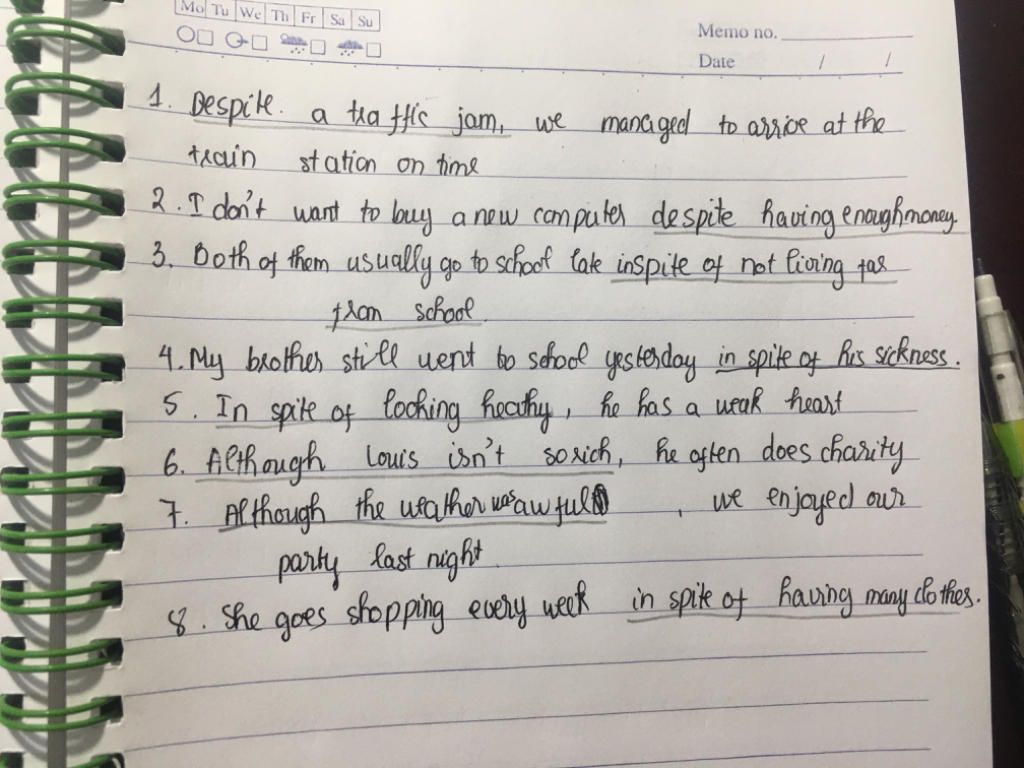 Mo Tu We Th Fr Sa Su
Memo no.
Date / /
1. Despite a traffic jam, we managed to arrive at the
train station on time
2. I don't want to buy a new computer despite having enough money.
3. Both of them usually go to school late inspite of not living far
from school.
4. My brother still went to school yesterday in spite of his sickness.
5. In spite of looking heathy, he has a weak heart
6. Although Louis isn't so rich, he often does charity
7. Although the weather was awful, we enjoyed our
party last night.
8. She goes shopping every week in spite of having many clothes.